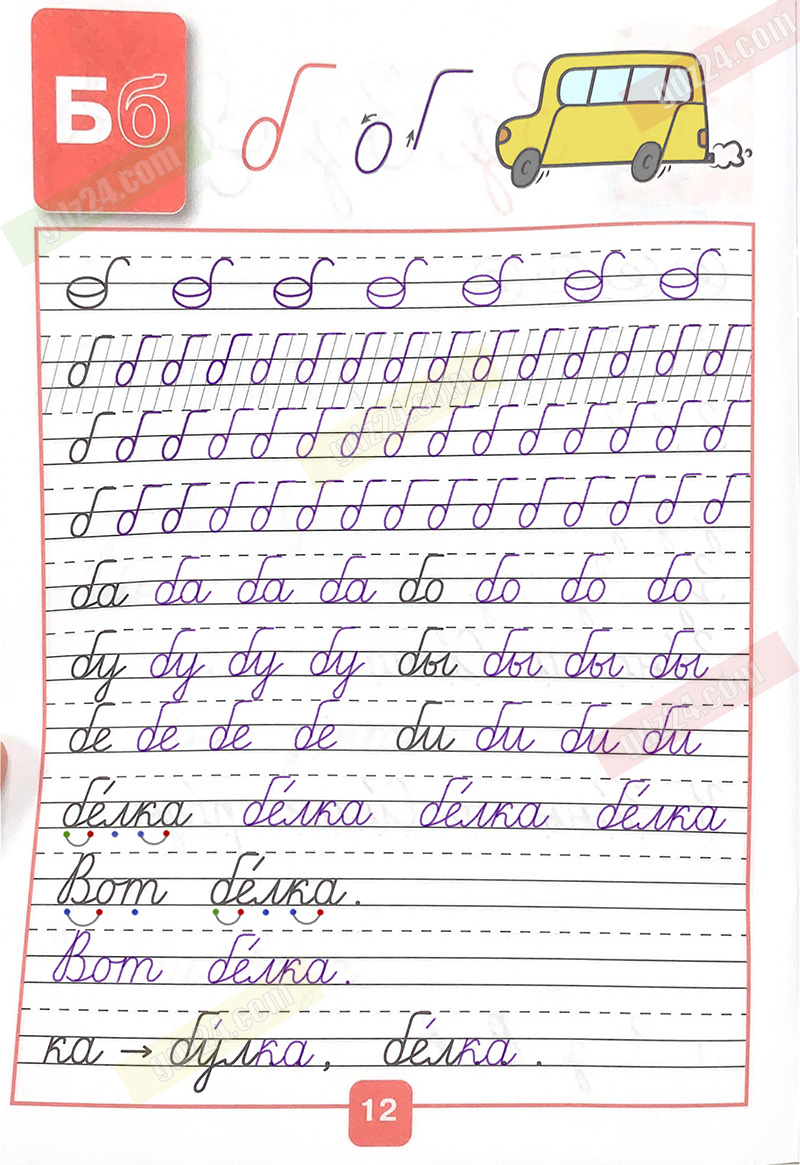 Бб б
gdz24.com
gdz24.com
б б б б б б б
б б б б б б б б б б б б б б б
б б б б б б б б б б б б б б б
gdz24.com
б б б б б б б б б б б б б б б
ба ба ба ба бо бо бо бо
бу бу бу бу бы бы бы бы
gdz24.com
бе бе бе бе би би би би
бе́лка бе́лка бе́лка бе́лка
Вот бе́лка.
Вот бе́лка.
gdz24.com
ка → бу́лка, бе́лка.
12